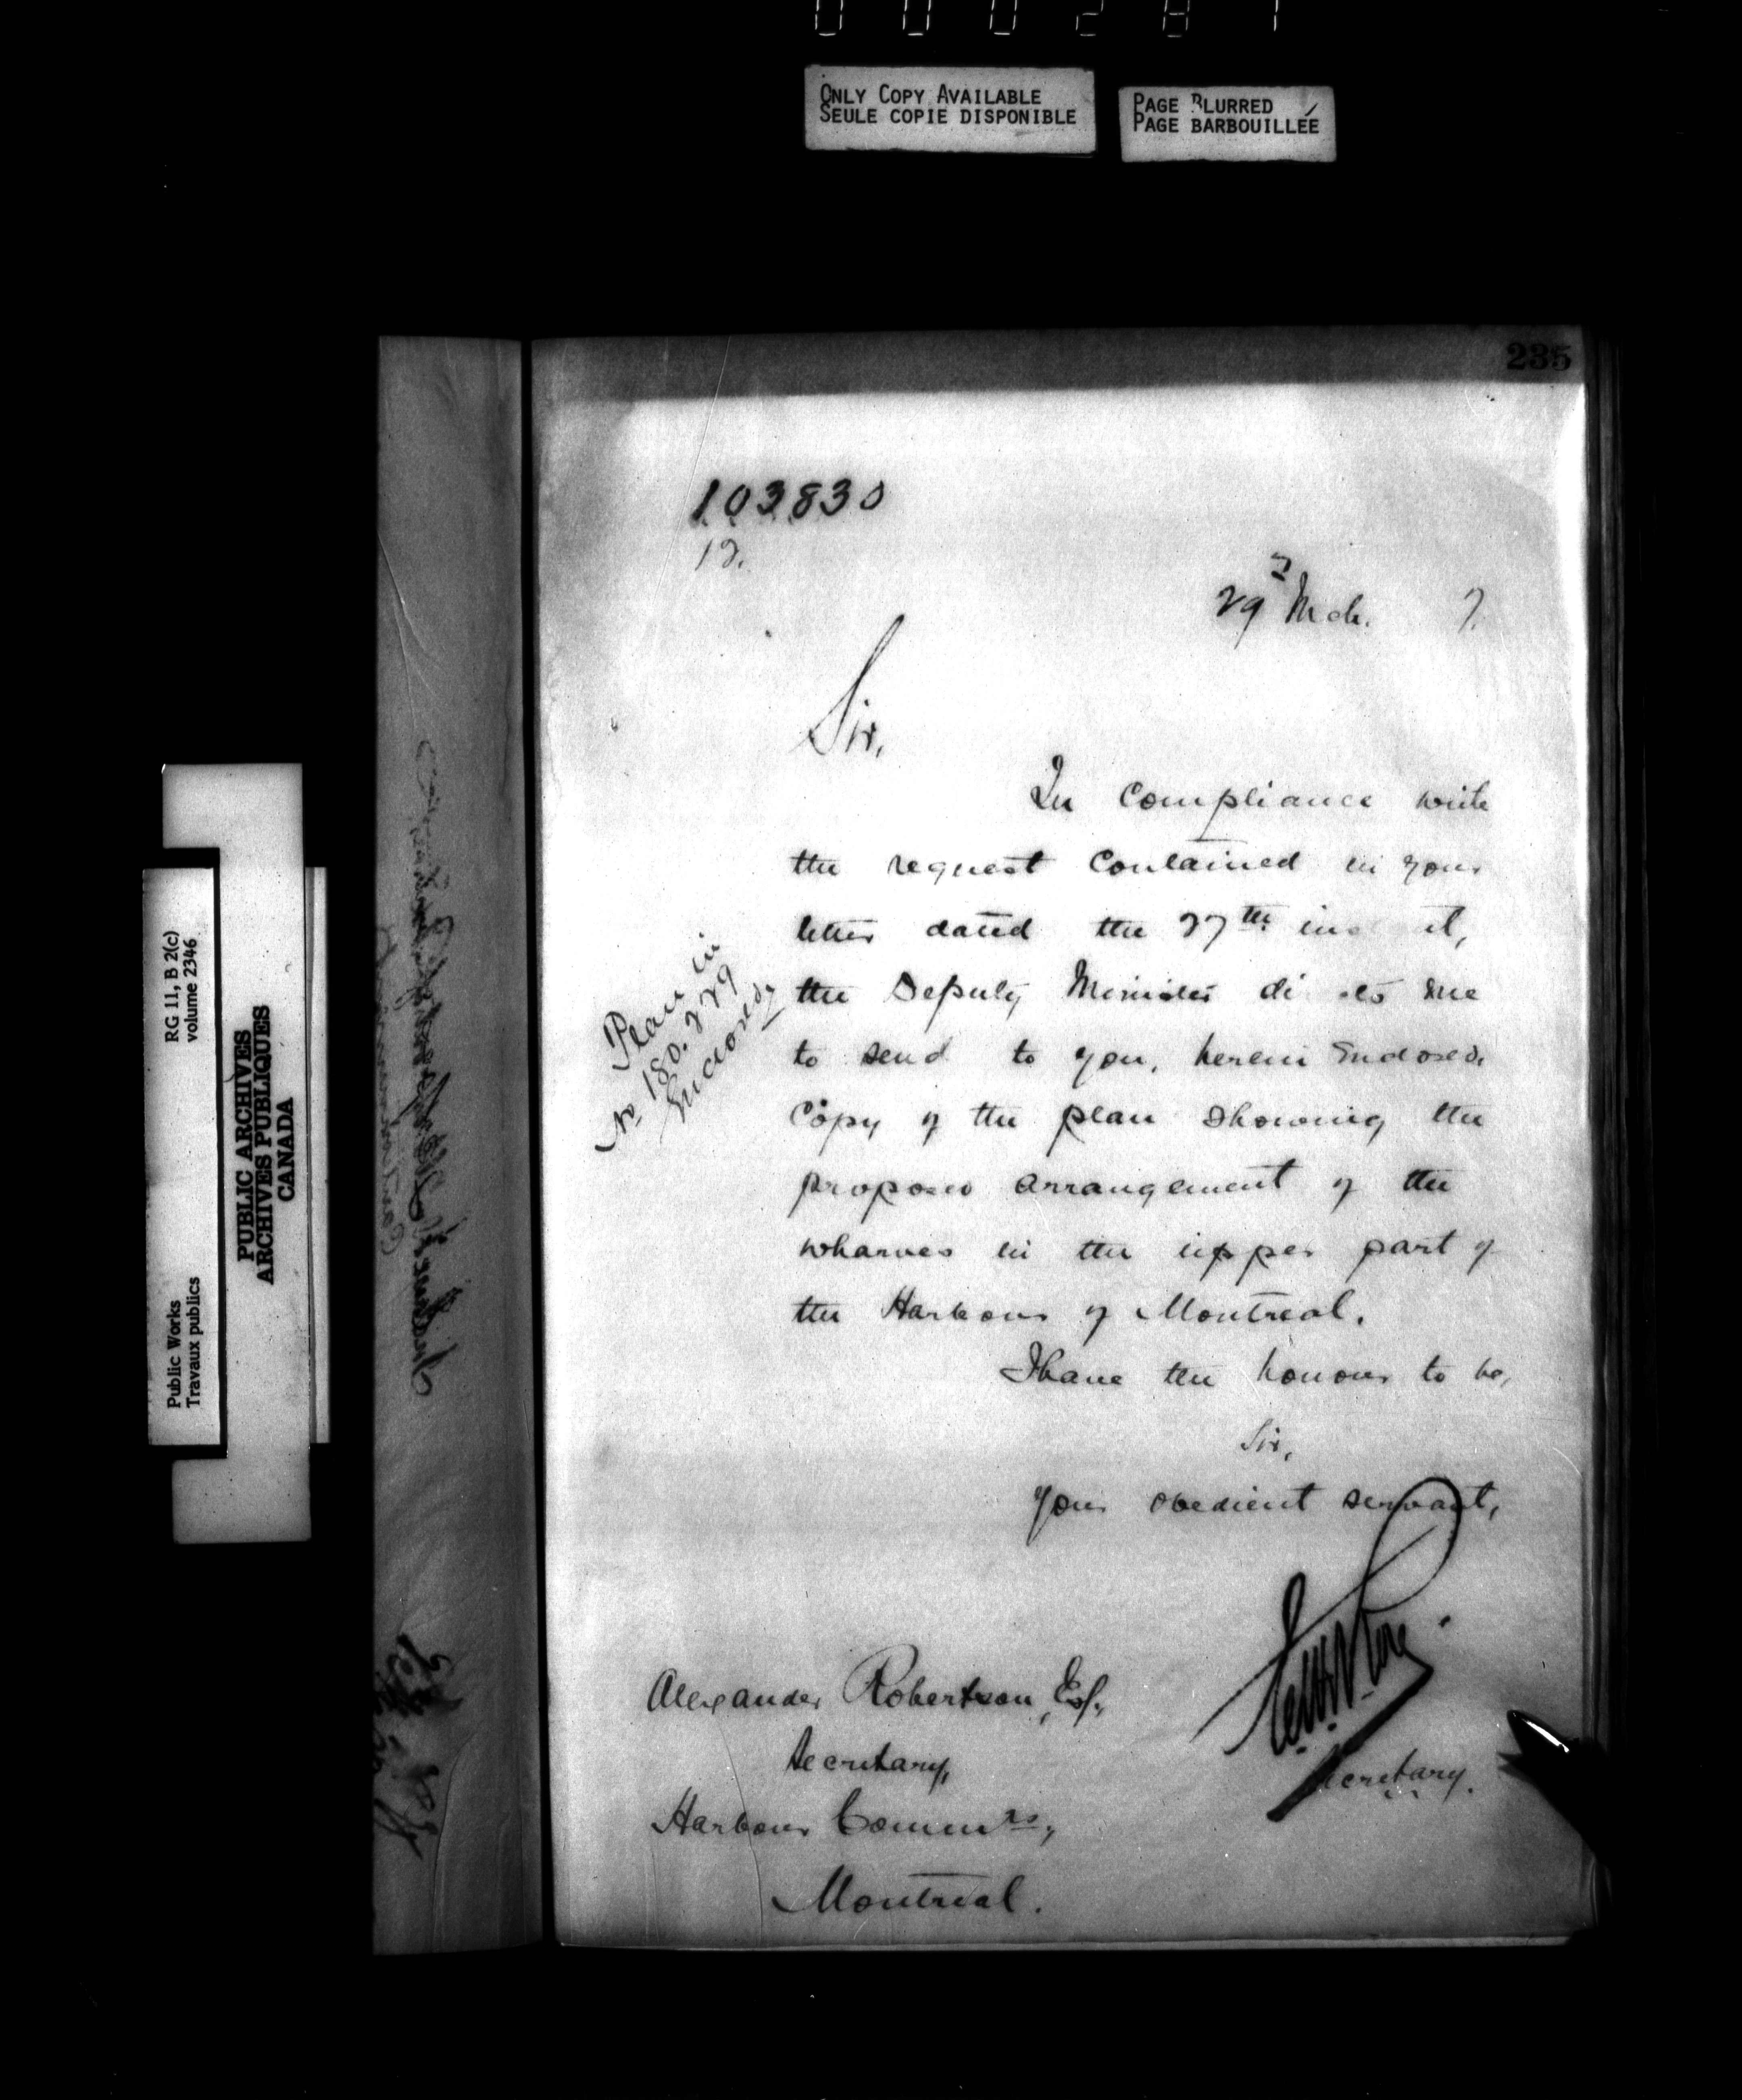 000281
ONLY COPY AVAILABLE
SEULE COPIE DISPONIBLE
PAGE BLURRED
PAGE BARBOUILLÉE
235
103830
29 Mch. 7.
Sir,
In compliance with
the request contained in your
letter dated the 27th inst,
the Deputy Minister directs me
to send to you, herein enclosed,
Copy of the plan showing the
proposed arrangement of the
wharves in the upper part of
the Harbour of Montreal.
I have the honour to be,
Sir,
Your obedient servant,
Secretary.
Plan in
No 180. of 29
Enclosed.
Alexander Robertson, Esq.,
Secretary,
Harbour Commrs,
Montreal.
RG 11, B 2(c)
volume 2346
Public Works
Travaux publics
PUBLIC ARCHIVES
ARCHIVES PUBLIQUES
CANADA